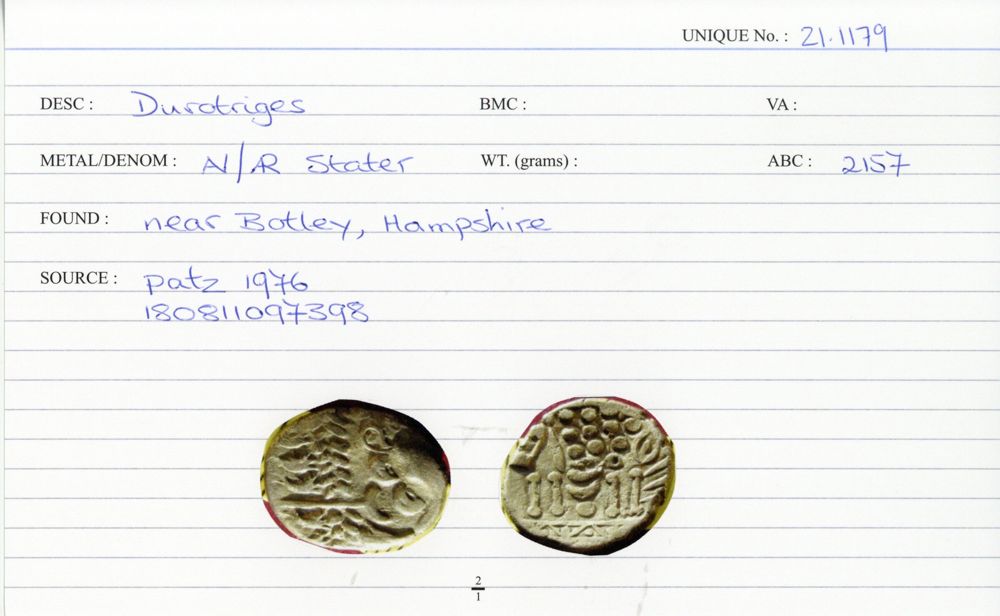 UNIQUE No. : 21.1179
DESC : Durotriges BMC : VA :
METAL/DENOM : N/R Stater WT. (grams) : ABC : 2157
FOUND : near Botley, Hampshire
SOURCE : Patz 1976
180811097398
2
1